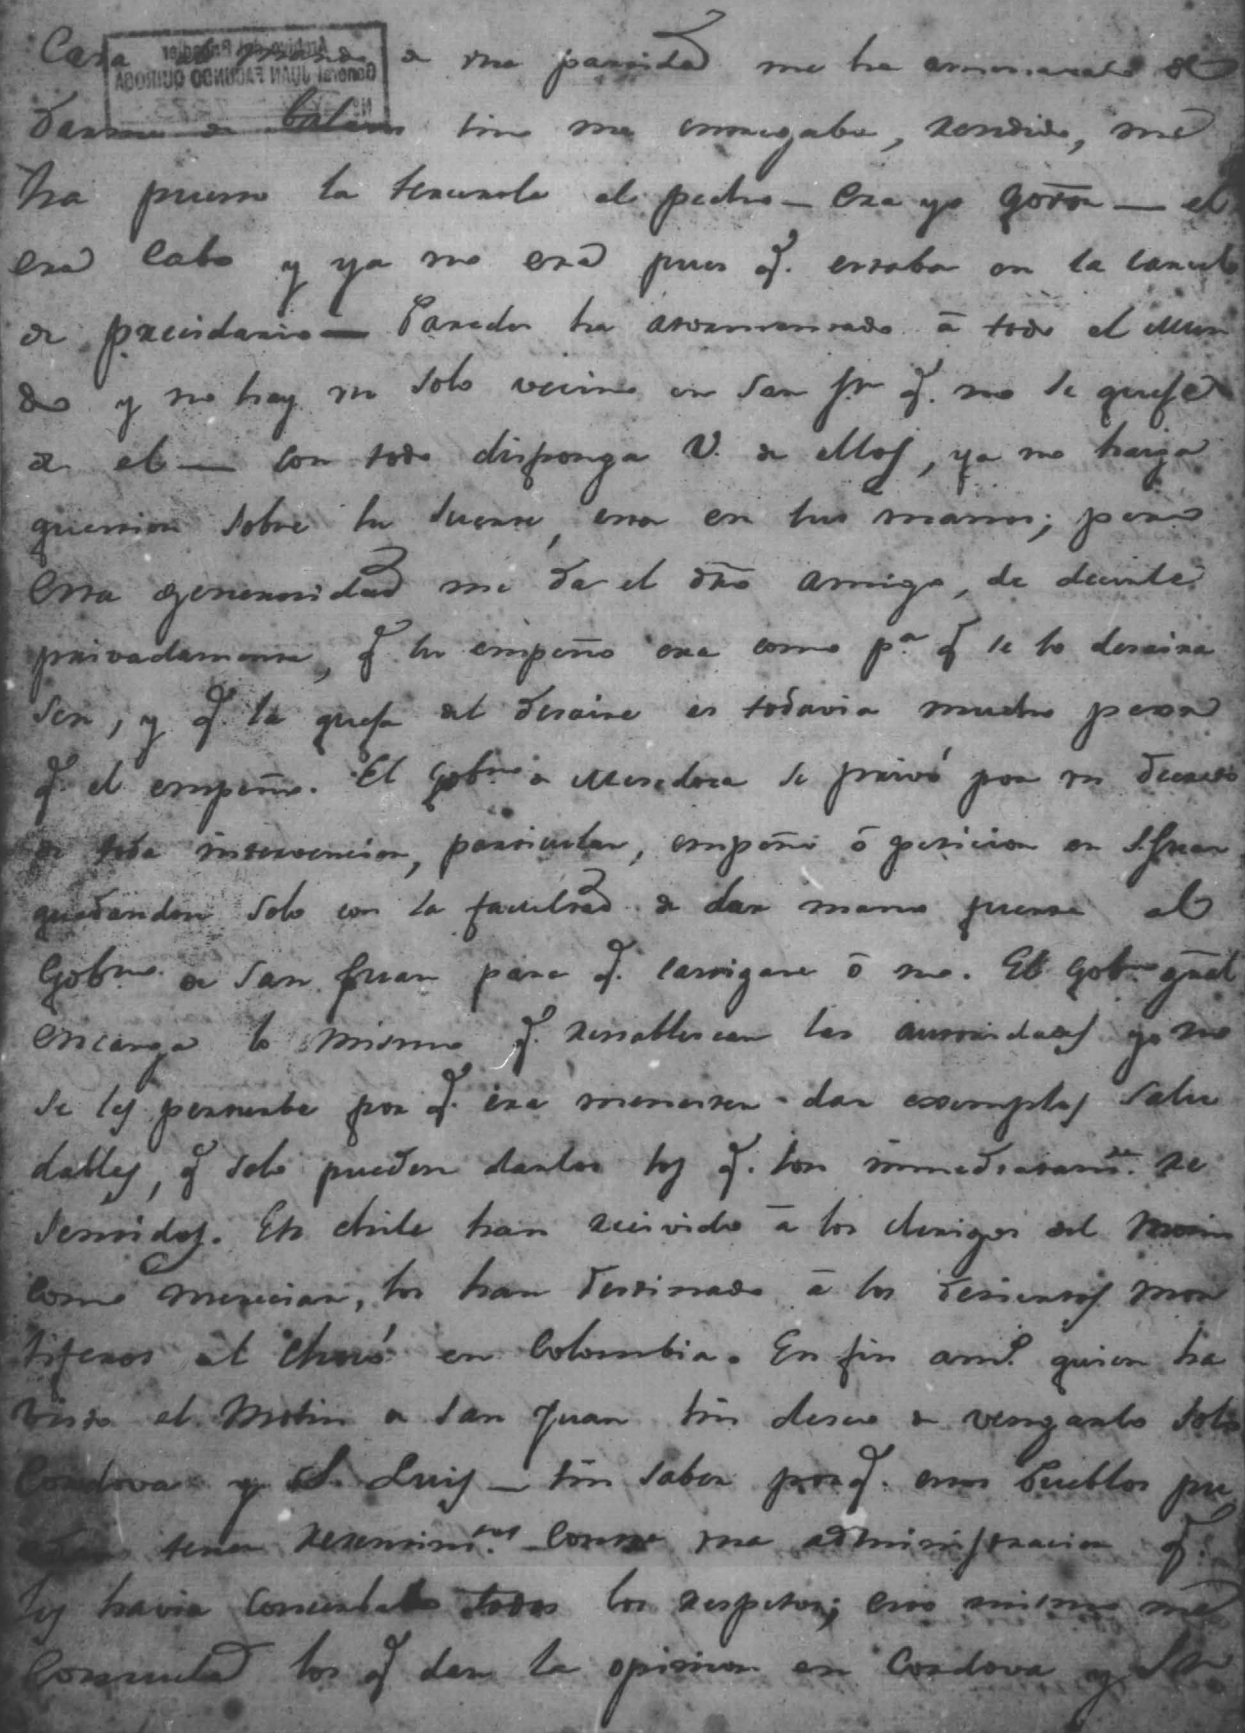 Casa de mando a una partida me ha amenazado de
darme de balazos sino me entregaba, rendido, me
ha puesto la tercerola al pecho — era yo Gov.or — el
era Cabo y ya no era pues q.e estaba en la carcel
de presidario — Paredes ha atormentado â todo el Mun
do y no hay un solo vecino en San Jn q.e no se queje
de el — con todo disponga V. de ellos, ya no haiga
question sobre su suerte, esta en sus manos; pero
esta generosidad me da el dro amigo, de decirle
privadamente, q.e su empeño era como p.a q.e se lo desaira
sen, y q.e la queja del desaire es todavia mucho peor
q.e el empeño. El Gob.no de Mendoza se privó por un decreto
de toda intervencion, particular, empeño ó peticion en S. Juan
quedandose solo con la facultad de dar mano fuerte al
Gob.no de San Juan para q.e castigase ó no. El Gob.no gral
encarga lo mismo q.e restablescan las autoridades y no
se les perturbe por q.e era menester dar exemplos salu
dables, q.e solo pueden darlos los q.e son inmediatam.te re
sentidos. En chile han recivido â los clerigos del Motin
como merecian, los han destinado â los desiertos mor
tiferos del Chocó en Colombia. En fin am.o quien ha
visto el Motin de San Juan sin deseo de vengarlo solo
Cordova y S. Luis — sin saber porq.e esos Pueblos pu
tener resentim.tos contra una administracion q.e
les havia consultado todos los respetos; esos mismos me
Consulta los q.e dan la opinion en Cordova y Sn
Archivo del Brigadier
General JUAN FACUNDO QUIROGA
Nº